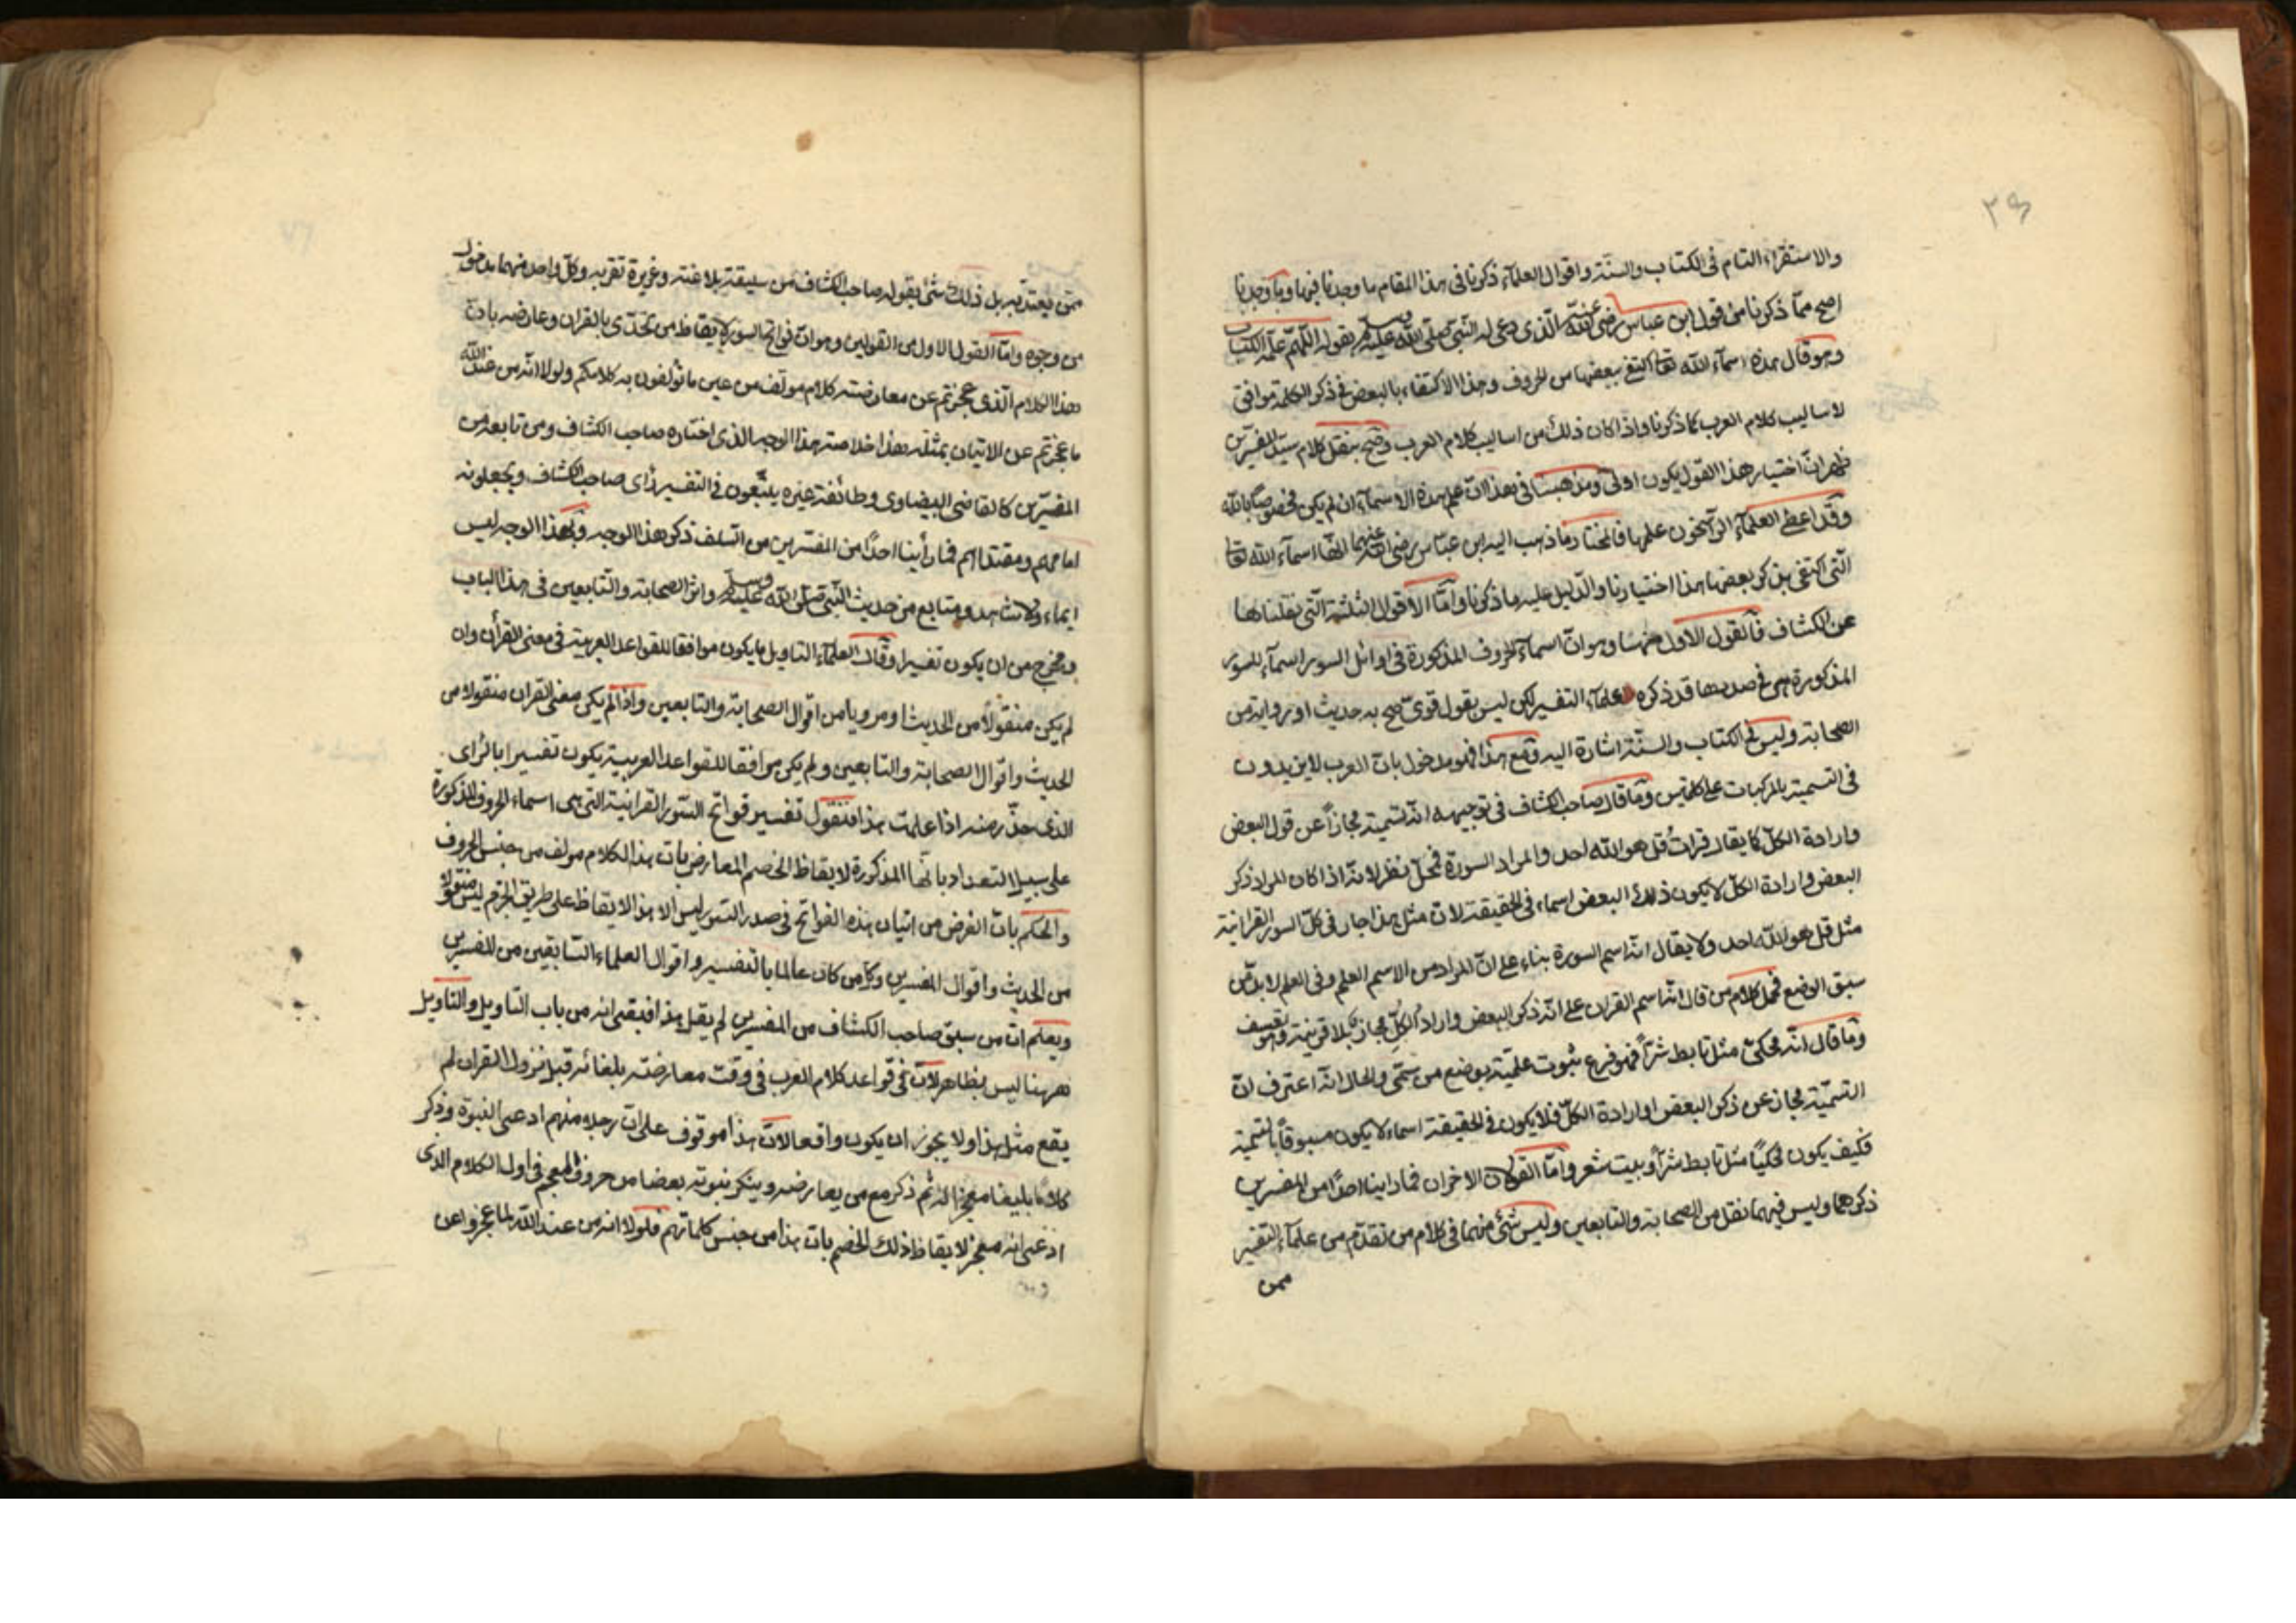 ٣٩
والاستقراء التام فى الكتاب والسنة واقوال العلمآء ذكرنا فى هذا المقام ما وجدنا فيها وما وجدنا
اصح ممّا ذكرنا من قول ابن عباس رضى الله عنه الذى دعى له النبى صلى الله عليه وسلم بقوله اللهم علمه الكتاب
وهو قال هذه اسمآء الله تعا اكتفى ببعضها من الحروف وهذا الاكتفاء بالبعض فى ذكر الكلمة موافق
لاساليب كلام العرب كما ذكرنا واذا كان ذلك من اساليب كلام العرب وصح بنقل كلام سيد المفسّرين
ظهر انّ اختيار هذا القول يكون اولى ومذهبنا فى هذا انّ علم هذه الاسمآء ان لم يكن مخصوصًا بالله
وقد اعطى العلمآء الراسخون علمها فالمختار ما ذهب اليه ابن عباس رضى الله عنهما انّها اسمآء الله تعا
الّتى اكتفى بذكر بعضها هذا اختيارنا والدّليل عليه ما ذكرنا وامّا الاقوال الثلثة الّتى نقلناها
عن الكشاف فالقول الاول منها وهو انّ اسمآء الحروف المذكورة فى اوائل السور اسمآء للسور
المذكورة هى فى صدرها قد ذكره علمآء التفسير لكن ليس بقول قوى صح به حديث او رواية من
الصحابة وليس فى الكتاب والسنّة اشارة اليه ومع هذا فهو مدخول بان العرب لا يزيدون
فى التسمية بالمركبات على كلمتين وما قال صاحب الكشاف فى توجيهه انه تسمية مجازاً عن قول البعض
وارادة الكلّ كما يقال قرات قل هو الله احد والمراد السورة فمحلّ نظر لانه اذا كان المراد ذكر
البعض وارادة الكلّ لا يكون ذلك البعض اسماء فى الحقيقة لان مثل هذا جار فى كلّ السور القرانية
مثل قل هو الله احد ولا يقال انه اسم السورة بناء على انّ المراد من الاسم العلم وفى العلم لا بدّ من
سبق الوضع فحمل كلام من قال انّها اسم القران على انّه ذكر البعض واراد الكلّ مجاز بلا قرينة وهو تعسف
وما قال انّه محكىّ مثل تابط شرًّا فهو فرع ثبوت علميّة بوضع من سمّى والحال انّه اعترف انّ
التسميّة مجاز عن ذكر البعض وارادة الكلّ فلا يكون فى الحقيقة اسماء لا يكون مسبوقاً بالتسمية
فكيف يكون محكيًا مثل تابط شرًّا وبيت شعر وامّا القولان الاخران فما راينا احدًا من المفسرين
ذكرهما وليس فيهما نقل من الصحابة والتابعين وليس شئ منهما فى كلام من تقدّم من علمآء التفسير
ممن
ممّن يعتدّ به بل ذلك شئ يقوله صاحب الكشاف من سليقة بلاغته وغريزة تقربه وكلّ واحد منهما مدخول
من وجوه وامّا القول الاول من القولين وهو انّ فواتح السور لايقاظ من تحدّى بالقران وعارضه بانّ
هذا الكلام الّذى عجزتم عن معارضته كلام مولف من عين ما تولفون به كلامكم ولولا انّه من عند الله
ما عجزتم عن الاتيان بمثله هذا خلاصة هذا الوجه الذى اختاره صاحب الكشاف ومن تابعه من
المفسّرين كالقاضى البيضاوى وطائفة غيره يتّبعون فى التفسير رأى صاحب الكشاف ويجعلونه
امامهم ومقتداهم فما رأينا احدًا من المفسّرين من السّلف ذكر هذا الوجه وبهذا الوجه ليس
ايماء ولا شاهد ومتابع من حديث النّبى صلى الله عليه وسلم واثر الصحابة والتّابعين فى هذا الباب
ومخرج من ان يكون تفسيرا وقال العلمآء التاويل ما يكون موافقا للقواعد العربية فى معنى القرأن وان
لم يكن منقولًا من الحديث او مرويا من اقوال الصحابة والتابعين واذا لم يكن معنى القران منقولا من
الحديث واقوال الصحابة والتابعين ولم يكن موافقا للقواعد العربية يكون تفسيرا بالرأى
الذى حذّر منه اذا علمت هذا فنقول تفسير فواتح السّور القرانية التى هى اسماء الحروف المذكورة
على سبيل التعداد بانّها المذكورة لايقاظ الخصم المعارض بان هذا الكلام مولف من جنس الحروف
والحكم بانّ الغرض من اتيان هذه الفواتح فى صدر السّور ليس الا هذا الايقاظ على طريق الجزم ليس منقولا
من الحديث واقوال المفسرين وكل من كان عالما بالتفسير واقوال العلماء السّابقين من المفسرين
ويعلم انّ من سبق صاحب الكشاف من المفسرين لم يقل هذا فبقى انه من باب التاويل والتاويل
ههنا ليس بظاهر لانّ فى قواعد كلام العرب فى وقت معارضة بلغائه قبل نزول القران لم
يقع مثل هذا ولا يجوز ان يكون واقعا لانّ هذا موقوف على ان رجلا منهم ادعى النبوة وذكر
كلامًا بليغا معجزا له ثم ذكر مع من يعارضه وينكر نبوته بعضا من حروف المعجم فى اول الكلام الذى
ادعى انه معجز لايقاظ ذلك الخصم بان هذا من جنس كلماتهم فلولا انه من عند الله لما عجزوا عن